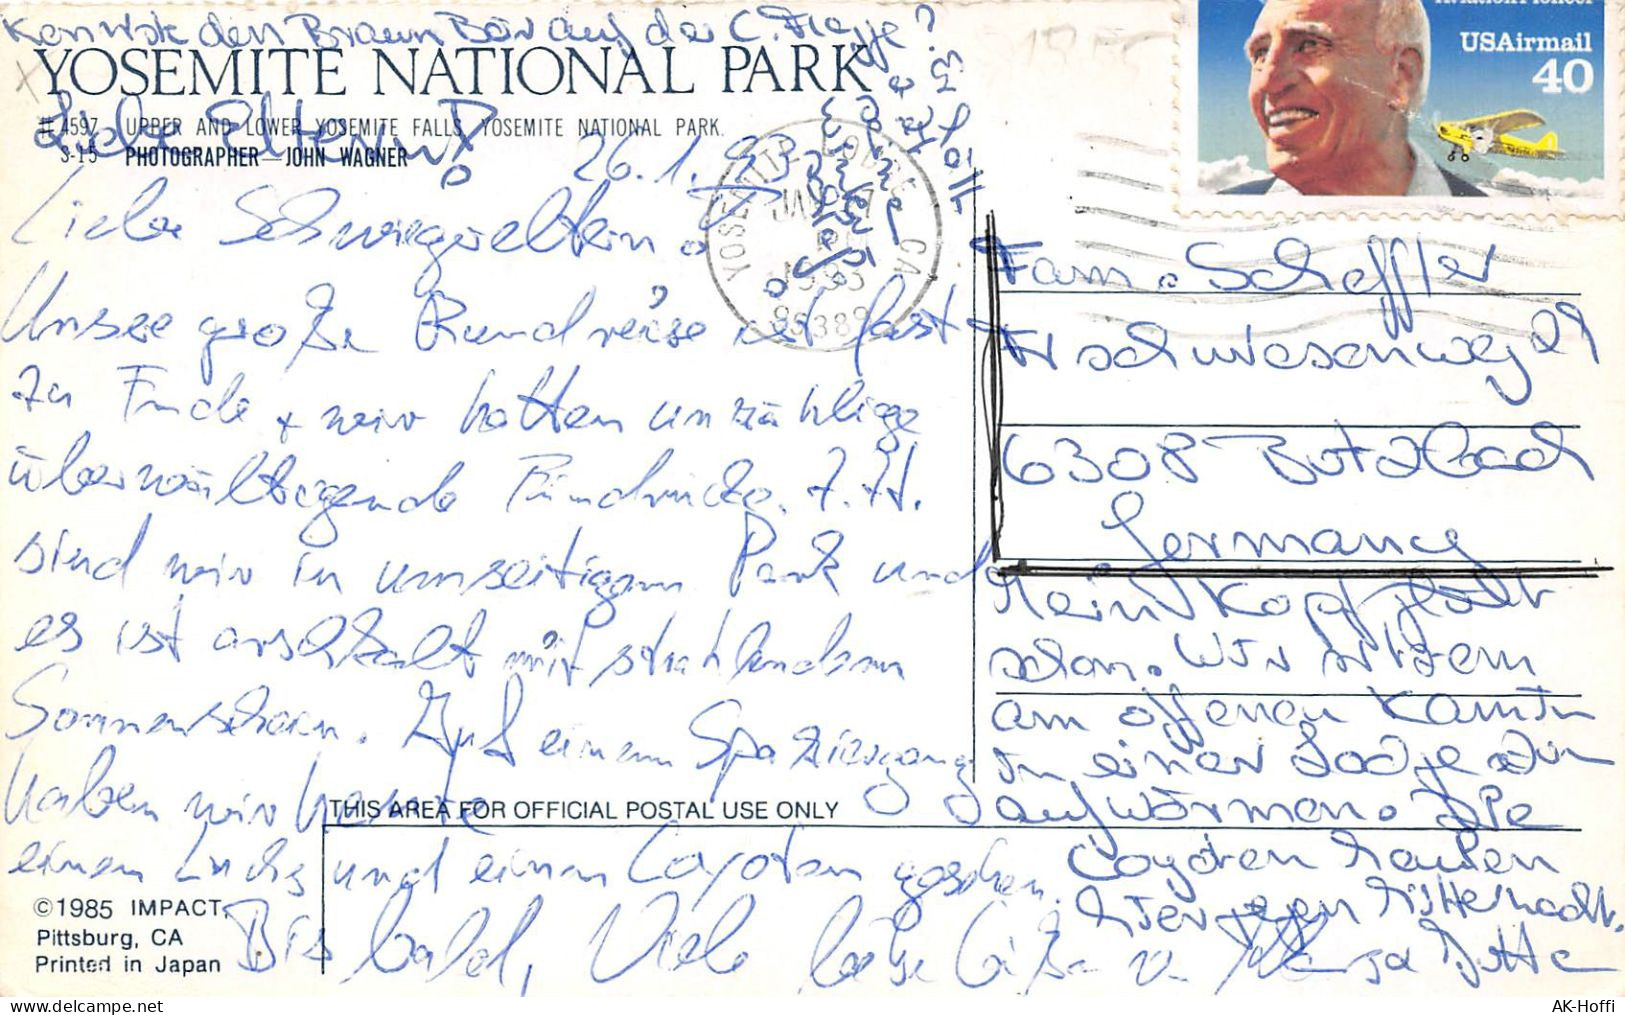 Kennst den Braun Bär auf der C. Flagge?
YOSEMITE NATIONAL PARK
Liebe Eltern!
# 4597 UPPER AND LOWER YOSEMITE FALLS, YOSEMITE NATIONAL PARK.
S-15 PHOTOGRAPHER—JOHN WAGNER
26.1.93
Liebe Schwiegereltern!
Unsere große Rundreise ist fast
zu Ende + wir hatten unzählige
überwältigende Eindrücke. Z.Zt.
sind wir in umseitigem Park und
es ist arschkalt mit strahlendem
Sonnenschein. Auf einem Spaziergang
haben wir heute
THIS AREA FOR OFFICIAL POSTAL USE ONLY
einen Luchs und einen Coyoten gesehen.
Bis bald, Viele liebe Grüße
©1985 IMPACT,
Pittsburg, CA
Printed in Japan
YOSEMITE LODGE CA
JAN 27
PM
1993
95389
Aviation Pioneer
USAirmail
40
Fam. Scheffler
6308 Butzbach
Germany
Mein Kopf
schon. Wir sitzen
am offenen Kamin
in einer Lodge zum
aufwärmen. Die
Coyoten heulen
hier gegen Mitternacht.
Jutta
AK-Hoffi